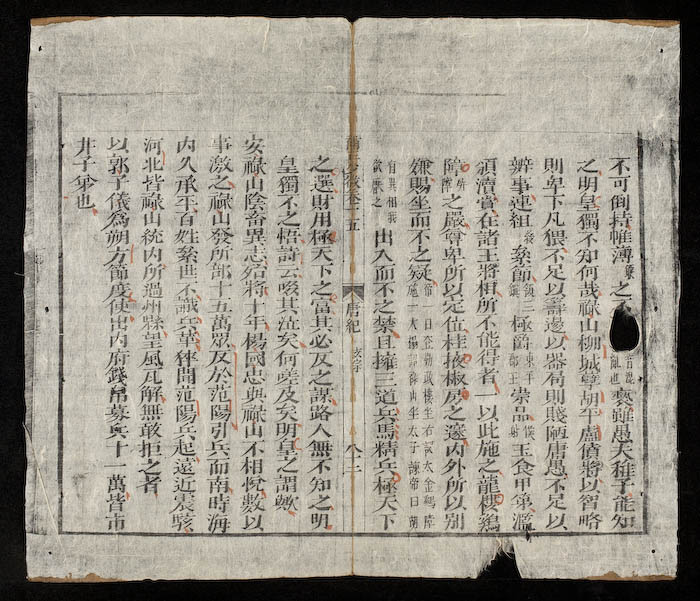 不可倒持帷薄之
褻雖愚夫稚子能知
之明皇獨不知何哉祿山柳城孽胡平盧偵將以智略
則卑下凡猥不足以籌邊以器局則賤陋庸愚不足以
辨事連組絫節三極爵崇品玉食甲第濫
頒瀆賞在諸王將相所不能得者一以此施之龍樓鷄
障之嚴會卑所以定位桂掖椒房之邃內外所以別
嫌賜坐而不之疑
帝一日登勤政樓坐右設大金鷄障
出入而不之禁且擁三道兵馬精兵極天下
之選財用極天下之富其必反之謀路人無不知之明
皇獨不之悟詩云啜其泣矣何嗟及矣明皇之謂歟
唐紀
玄宗
安祿山陰畜異志殆將十年楊國忠與祿山不相悅數以
事激之祿山發所部十五萬眾反於范陽引兵而南時海
內久承平百姓絫世不識兵革猝聞范陽兵起遠近震駭
河北皆祿山統內所過州縣望風瓦解無敢拒之者
以郭子儀為朔方節度使出內府錢帛募兵十一萬皆市
井子弟也